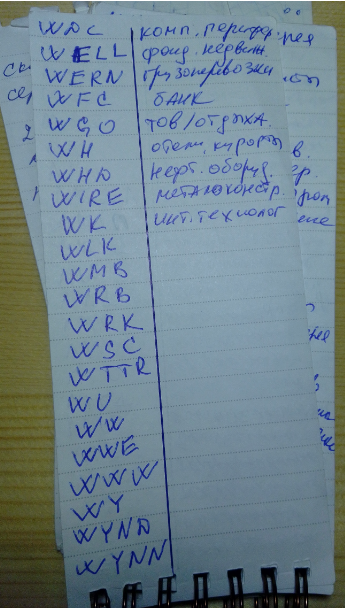 WDC комп. перифер.
WELL фонд. недвиж.
WERN грузоперевозки
WFC БАНК
WGO тов/отдыха.
WH отели, курорты
WHD нефт. оборуд.
WIRE металоконстр.
WK инт. технолог
WLK
WMB
WRB
WRK
WSC
WTTR
WU
WW
WWE
WWW
WY
WYND
WYNN